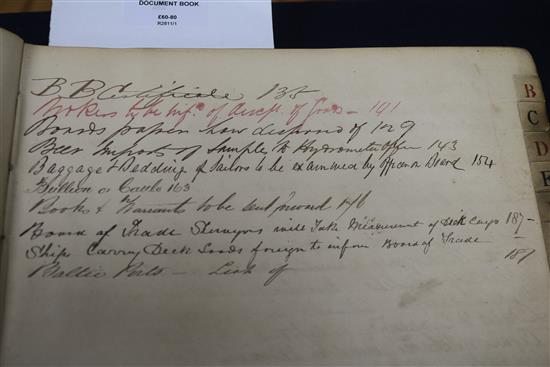 DOCUMENT BOOK
£60-80
R2811/1
B B Certificate 135
Brokers to be inf.d of discp.t of Goods - 141
Boards papers how disposed of 129
Beer Imports of Sample to Hydrometer Officer 143
Baggage & Bedding of Sailors to be examined by Officer on Board 154
Bullion or Cattle 163
Books & Warrants to be sent inward 176
Board of Trade Surveyors will take Measurement of Deck Cargo 187
Ships Carrying Deck Loads foreign to inform Board of Trade
187
Baltic Ports - List of
B
C
D
E